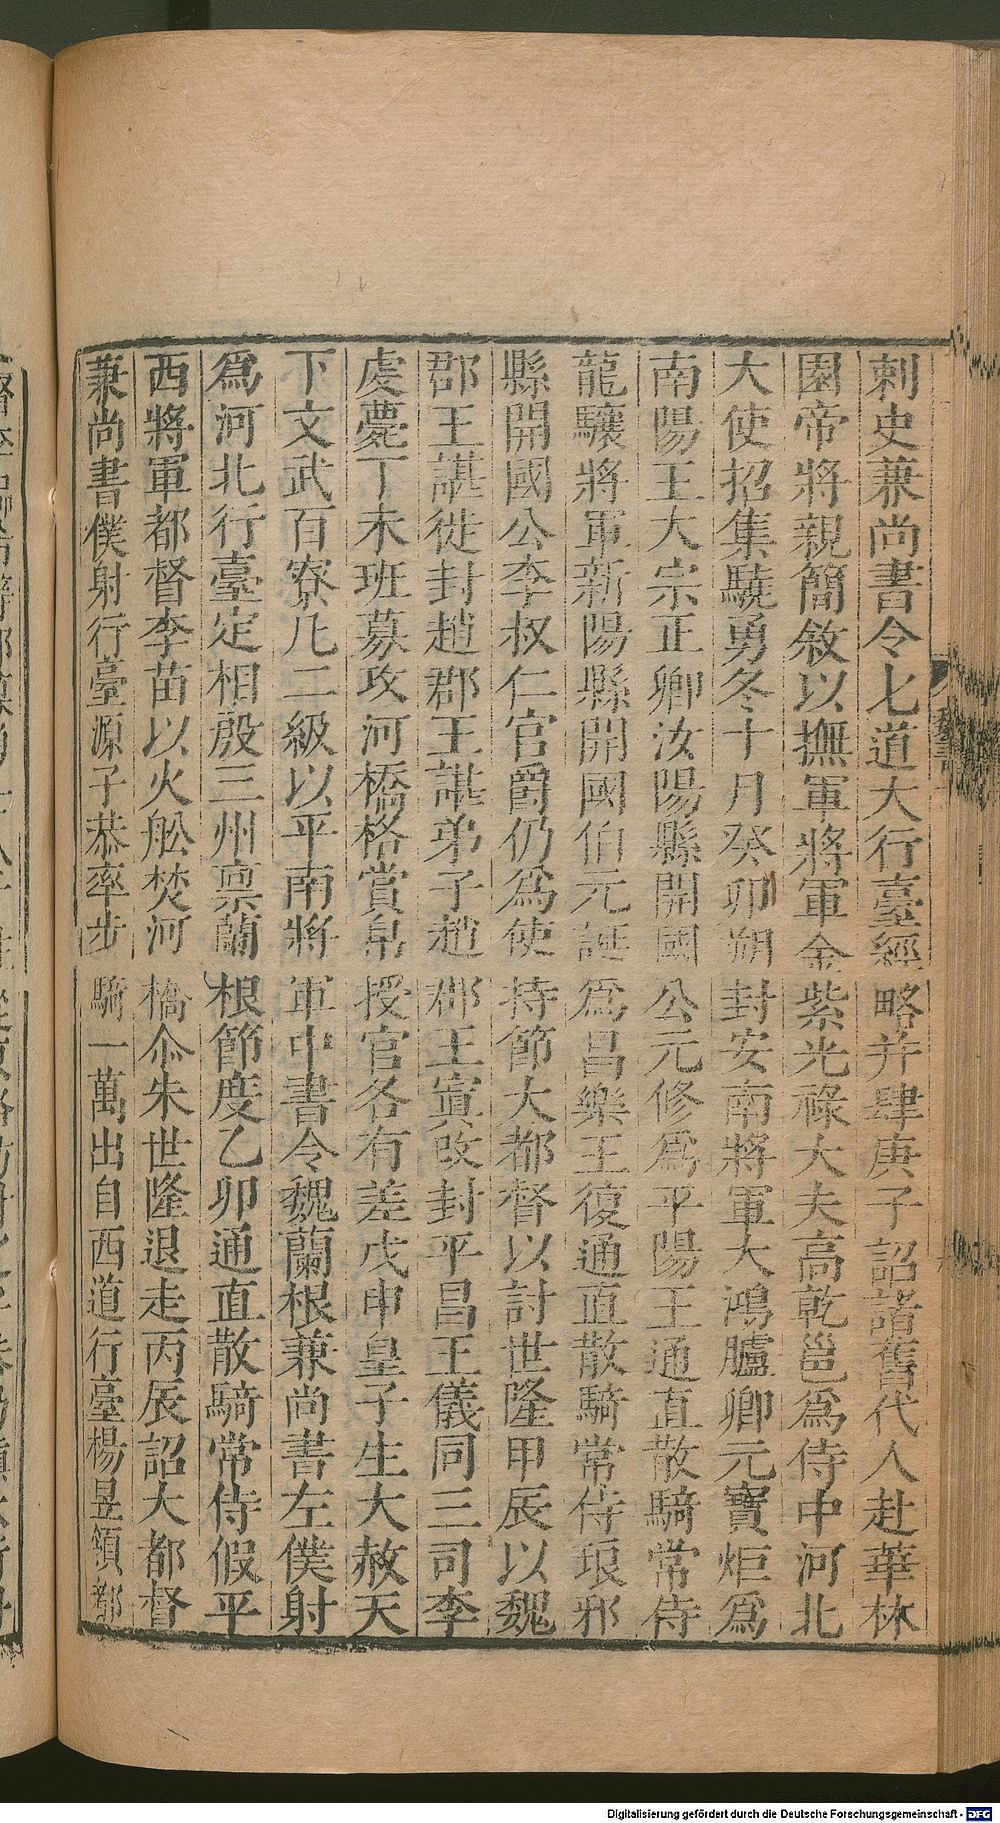 刺史兼尚書令七道大行臺經略并肆庚子詔諸舊代人赴華林
園帝將親簡敘以撫軍將軍金紫光祿大夫高乾邕爲侍中河北
大使招集驍勇冬十月癸卯朔封安南將軍大鴻臚卿元寶炬爲
南陽王大宗正卿汝陽縣開國公元修爲平陽王通直散騎常侍
龍驤將軍新陽縣開國伯元誕爲昌樂王復通直散騎常侍琅邪
縣開國公李叔仁官爵仍爲使持節大都督以討世隆甲辰以魏
郡王諶徙封趙郡王諶弟子趙郡王寘改封平昌王儀同三司李
虔薨丁未班募攻河橋格賞帛授官各有差戊申皇子生大赦天
下文武百寮凡二級以平南將軍中書令魏蘭根兼尚書左僕射
爲河北行臺定相殷三州稟蘭根節度乙卯通直散騎常侍假平
西將軍都督李苗以火舩焚河橋尒朱世隆退走丙辰詔大都督
兼尚書僕射行臺源子恭率步騎一萬出自西道行臺楊昱領都
魏書
Digitalisierung gefördert durch die Deutsche Forschungsgemeinschaft - DFG